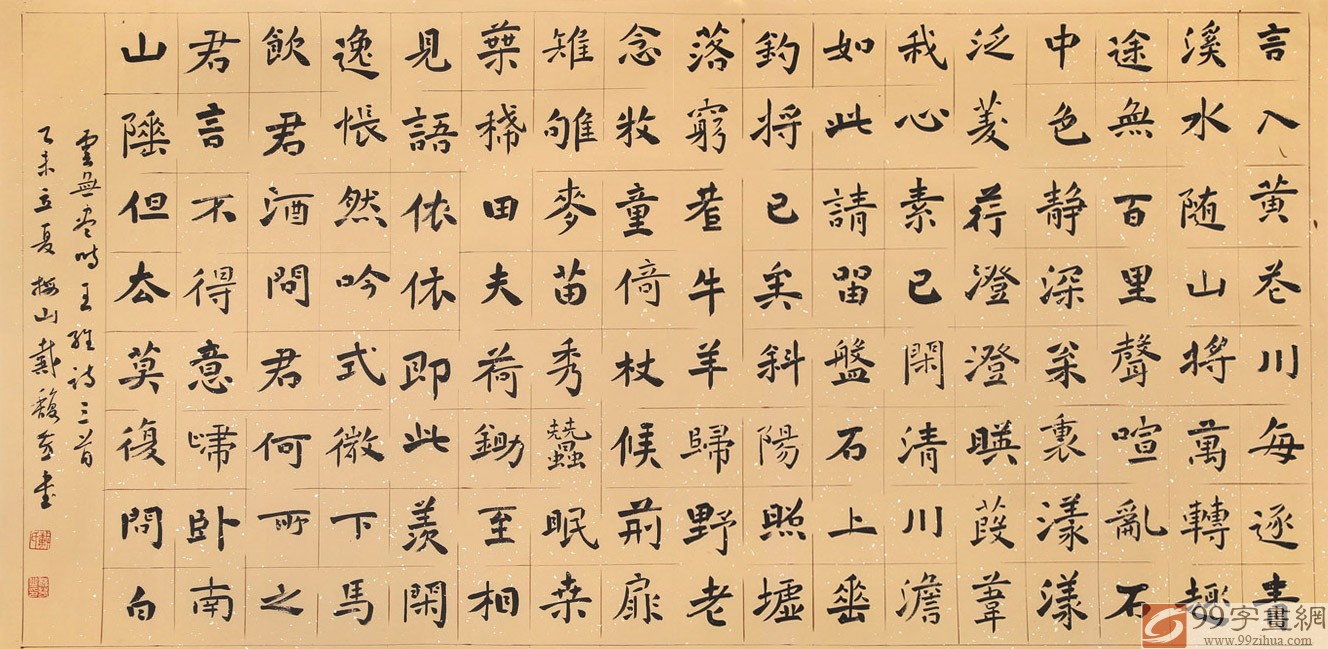 言入黄花川每逐青
溪水随山将萬轉趣
途無百里聲喧亂石
中色静深松裏漾漾
泛菱荇澄澄暎葭葦
我心素已閑清川澹
如此請留盤石上垂
釣将已矣斜陽照墟
落窮巷牛羊歸野老
念牧童倚杖候荆扉
雉雊麥苗秀蠶眠桒
葉稀田夫荷鋤至相
見語依依即此羡閑
逸悵然吟式微下馬
飲君酒問君何所之
君言不得意歸卧南
山陲但去莫復問白
雲無盡時王維詩三首
乙未立夏 山戴馥 書
99字畫網
www.99zihua.com